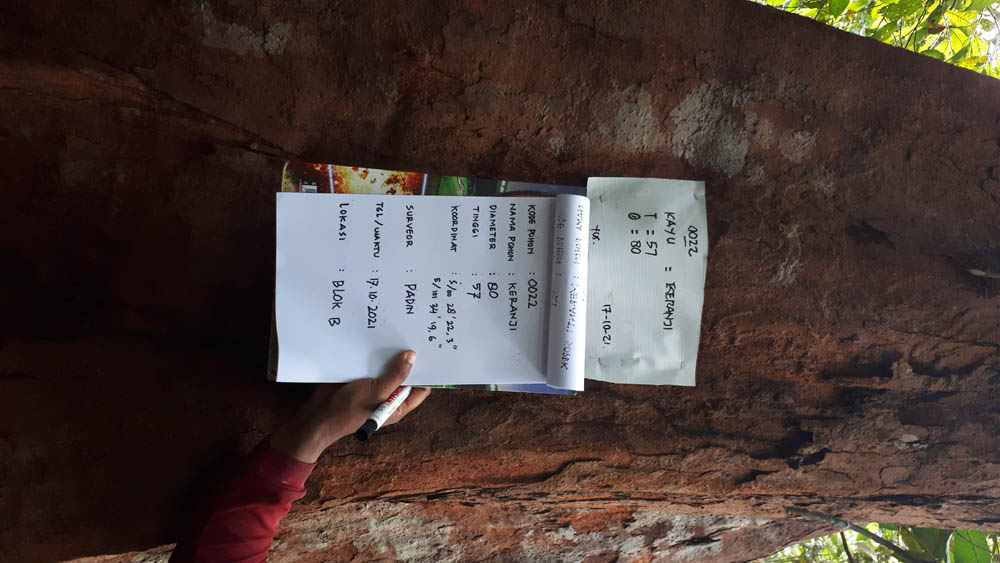 0022
KAYU : KERANJI
T = 57
Ø = 80
17-10-21.
YUS.
KODE POHON : 0022
NAMA POHON : KERANJI
DIAMETER : 80
TINGGI : 57
KOORDINAT : S/00 28'22,3"
E/101 34'19,6"
SURVEOR : PADIN
TGL/WAKTU : 17.10.2021
LOKASI : BLOK B